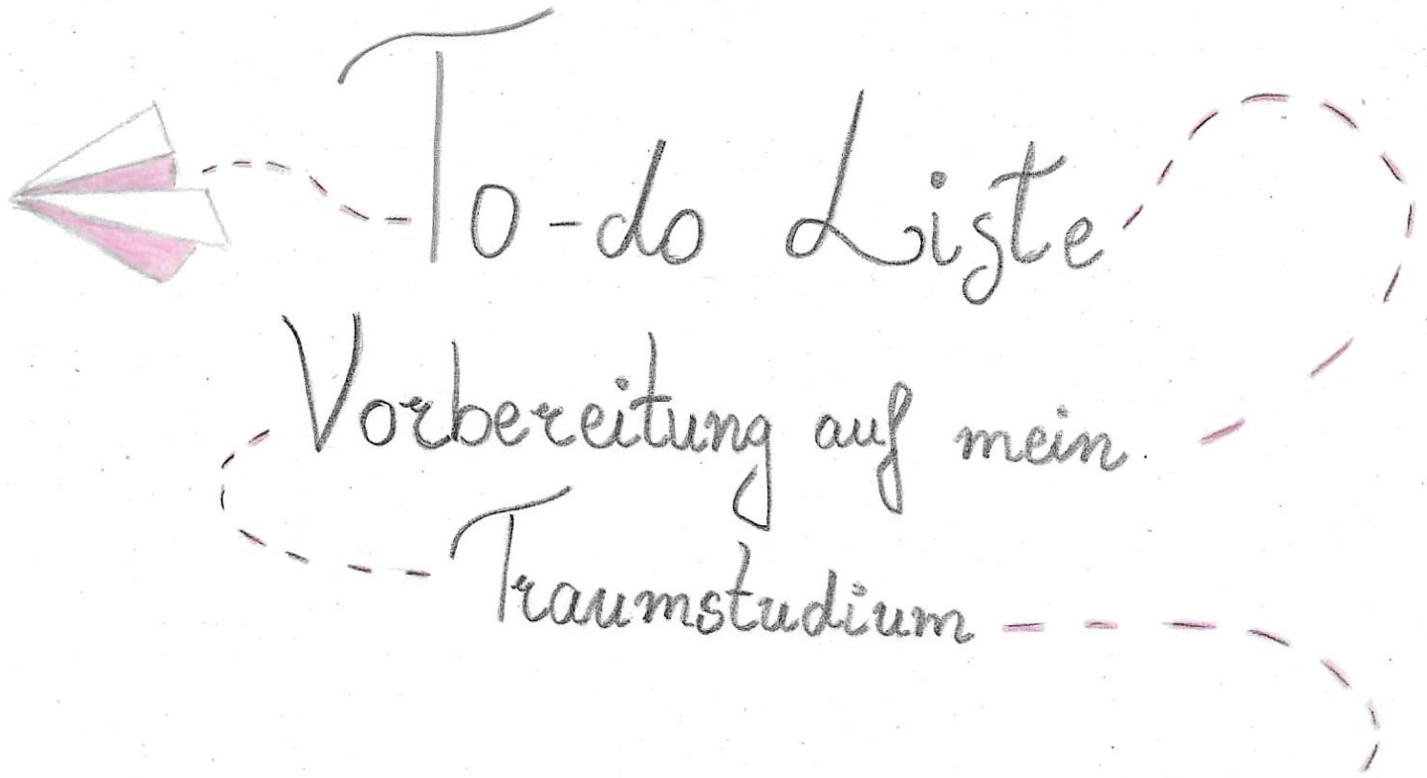 To-do Liste
Vorbereitung auf mein
Traumstudium